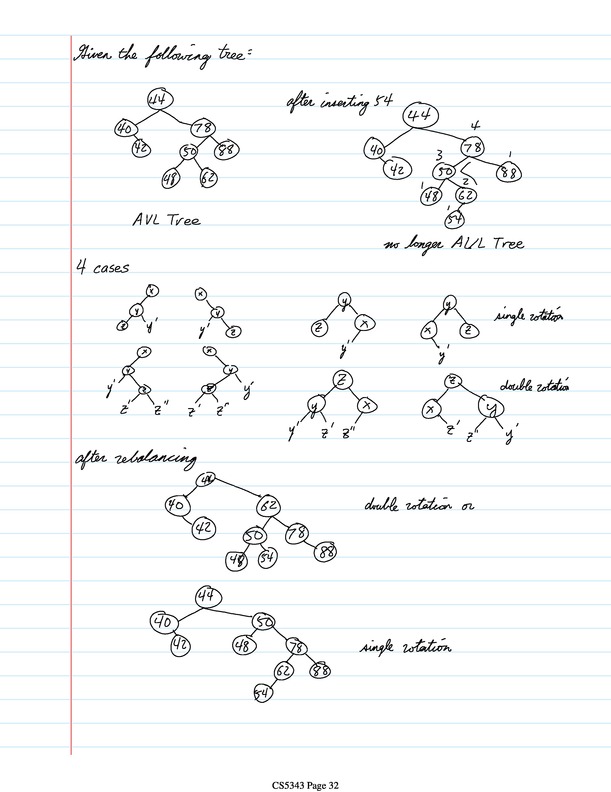 Given the following tree:
after inserting 54
44
40 78
42 50 88
48 62
AVL Tree
44
4
40 78
3 1
42 50 88
1 2
48 62
1
54
no longer AVL Tree
4 cases
x x y y
y y z x x z single rotation
z y' y' z y' y'
x x z z double rotation
y y y x x y
y' z z y' y' z' z'' z' z'' y'
z' z'' z' z''
after rebalancing
44
40 62 double rotation or
42 50 78
48 54 88
44
40 50
42 48 78 single rotation
62 88
54
CS5343 Page 32